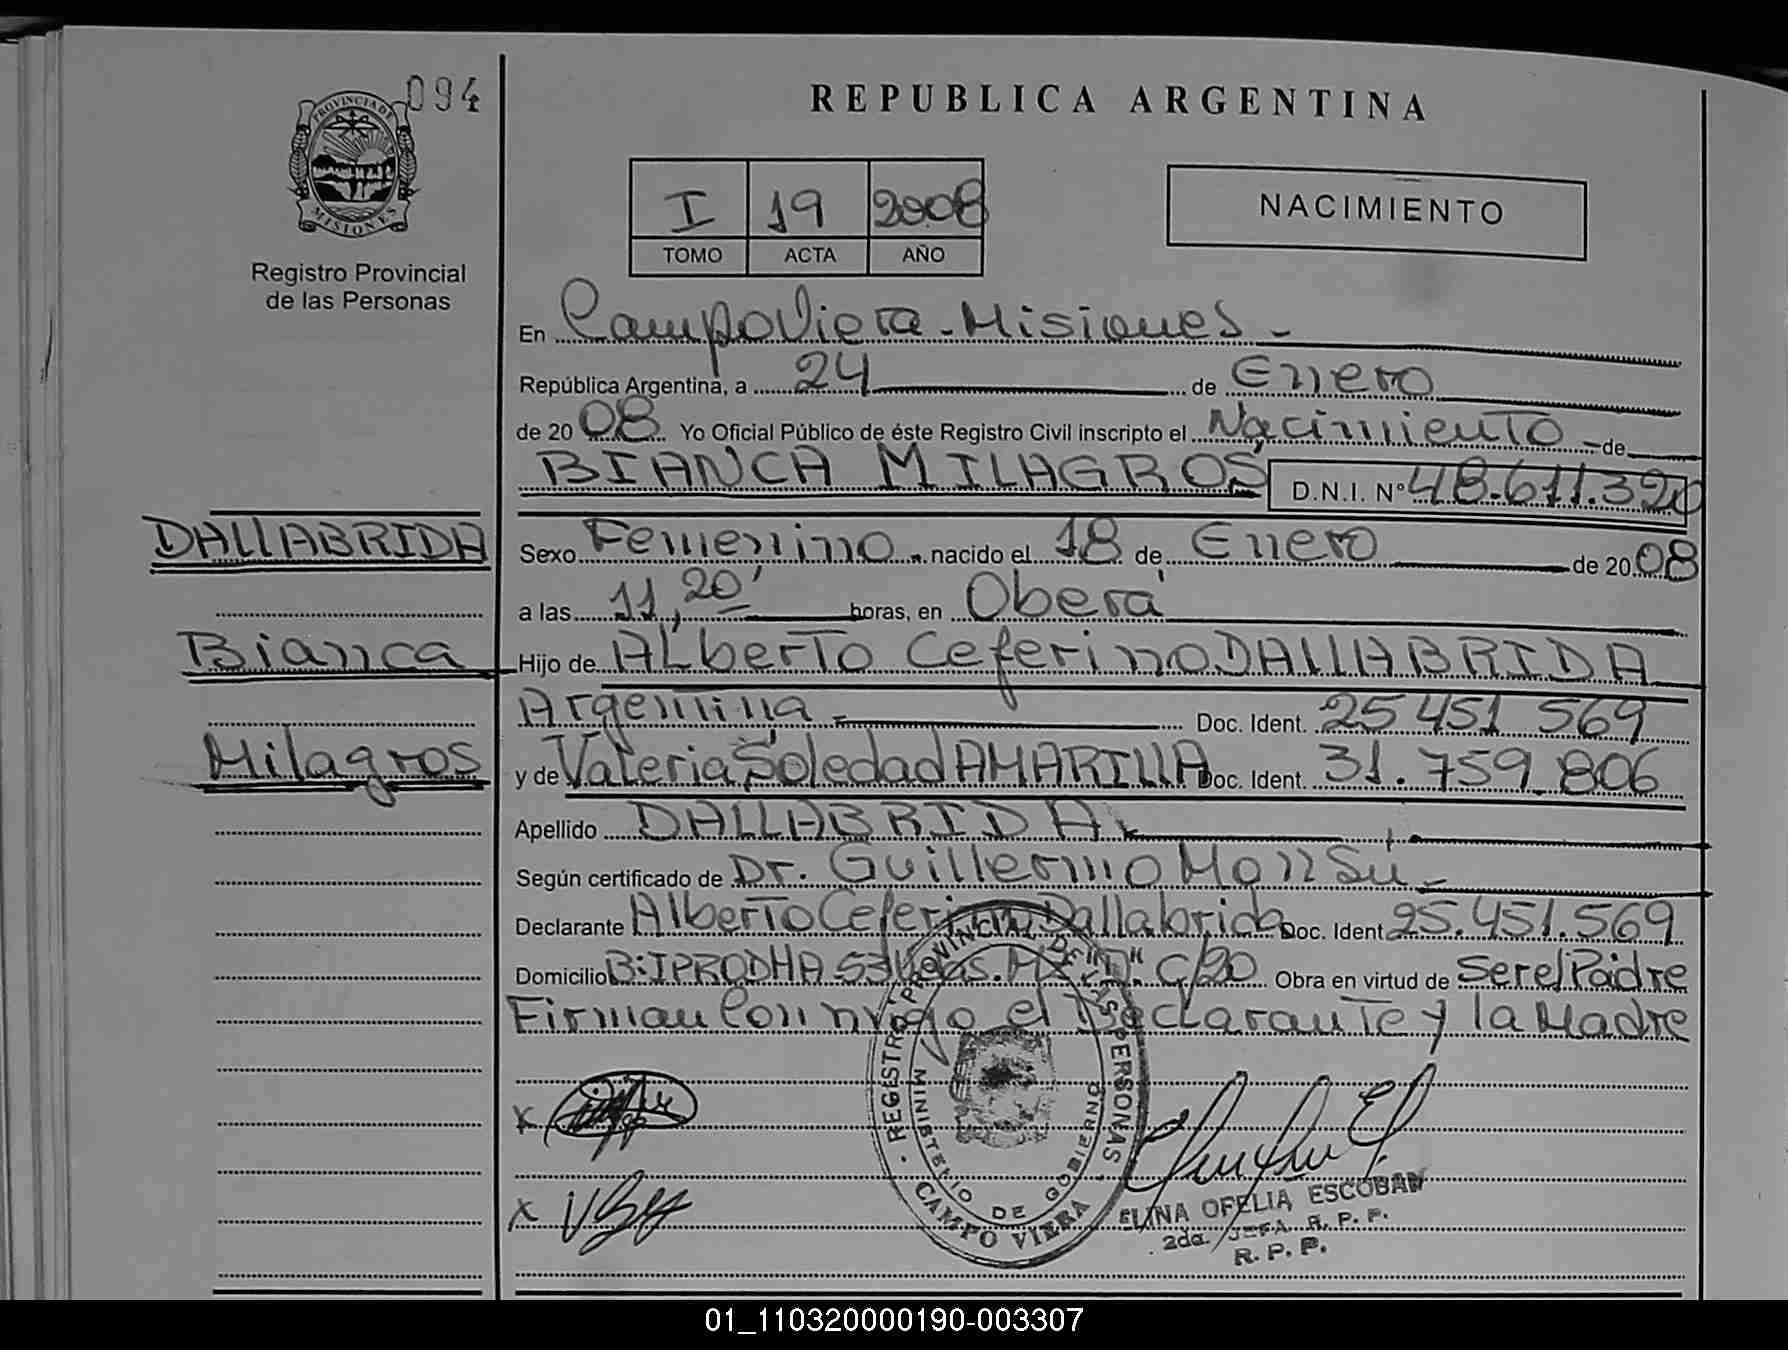 094
PROVINCIA DE
MISIONES
Registro Provincial
de las Personas
REPUBLICA ARGENTINA
I 19 2008
TOMO ACTA AÑO
NACIMIENTO
En Campo Viera - Misiones -
República Argentina, a 24 de Enero
de 2008 Yo Oficial Público de éste Registro Civil inscripto el Nacimiento - de
BIANCA MILAGROS D.N.I. Nº 48.611.320
DALLABRIDA
Sexo Femenino - nacido el 18 de Enero de 2008
a las 11,20' horas, en Oberá
Bianca
Hijo de Alberto Ceferino DALLABRIDA
Argentina - Doc. Ident. 25 451 569
Milagros
y de Valeria Soledad AMARILLA Doc. Ident. 31.759.806
Apellido DALLABRIDA
Según certificado de Dr. Guillermo Monsu -
Declarante Alberto Ceferino Dallabrida Doc. Ident 25.451.569
Domicilio B: IPRODHA 53 Mz "D" C/20 Obra en virtud de Ser el Padre
Firman Conmigo el Declarante y la Madre
x
x
REGISTRO PROVINCIAL DE LAS PERSONAS
MINISTERIO DE GOBIERNO
CAMPO VIERA
ELINA OFELIA ESCOBAR
2da. JEFA R. P. P.
R. P. P.
01_110320000190-003307